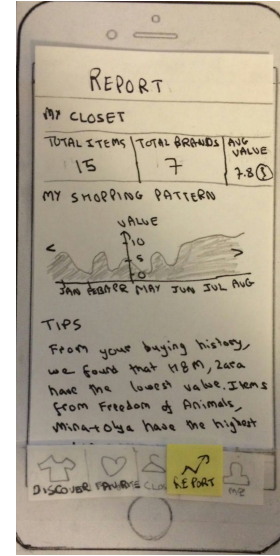 REPORT
MY CLOSET
TOTAL ITEMS TOTAL BRANDS AVG VALUE
15 7 7.8
MY SHOPPING PATTERN
VALUE
10
5
0
JAN APR MAY JUN JUL AUG
TIPS
From your buying history,
we found that H&M, Zara
have the lowest value. Items
from Freedom of Animals,
Mina+Olya have the highest
DISCOVER FAVORITE CLO REPORT ME